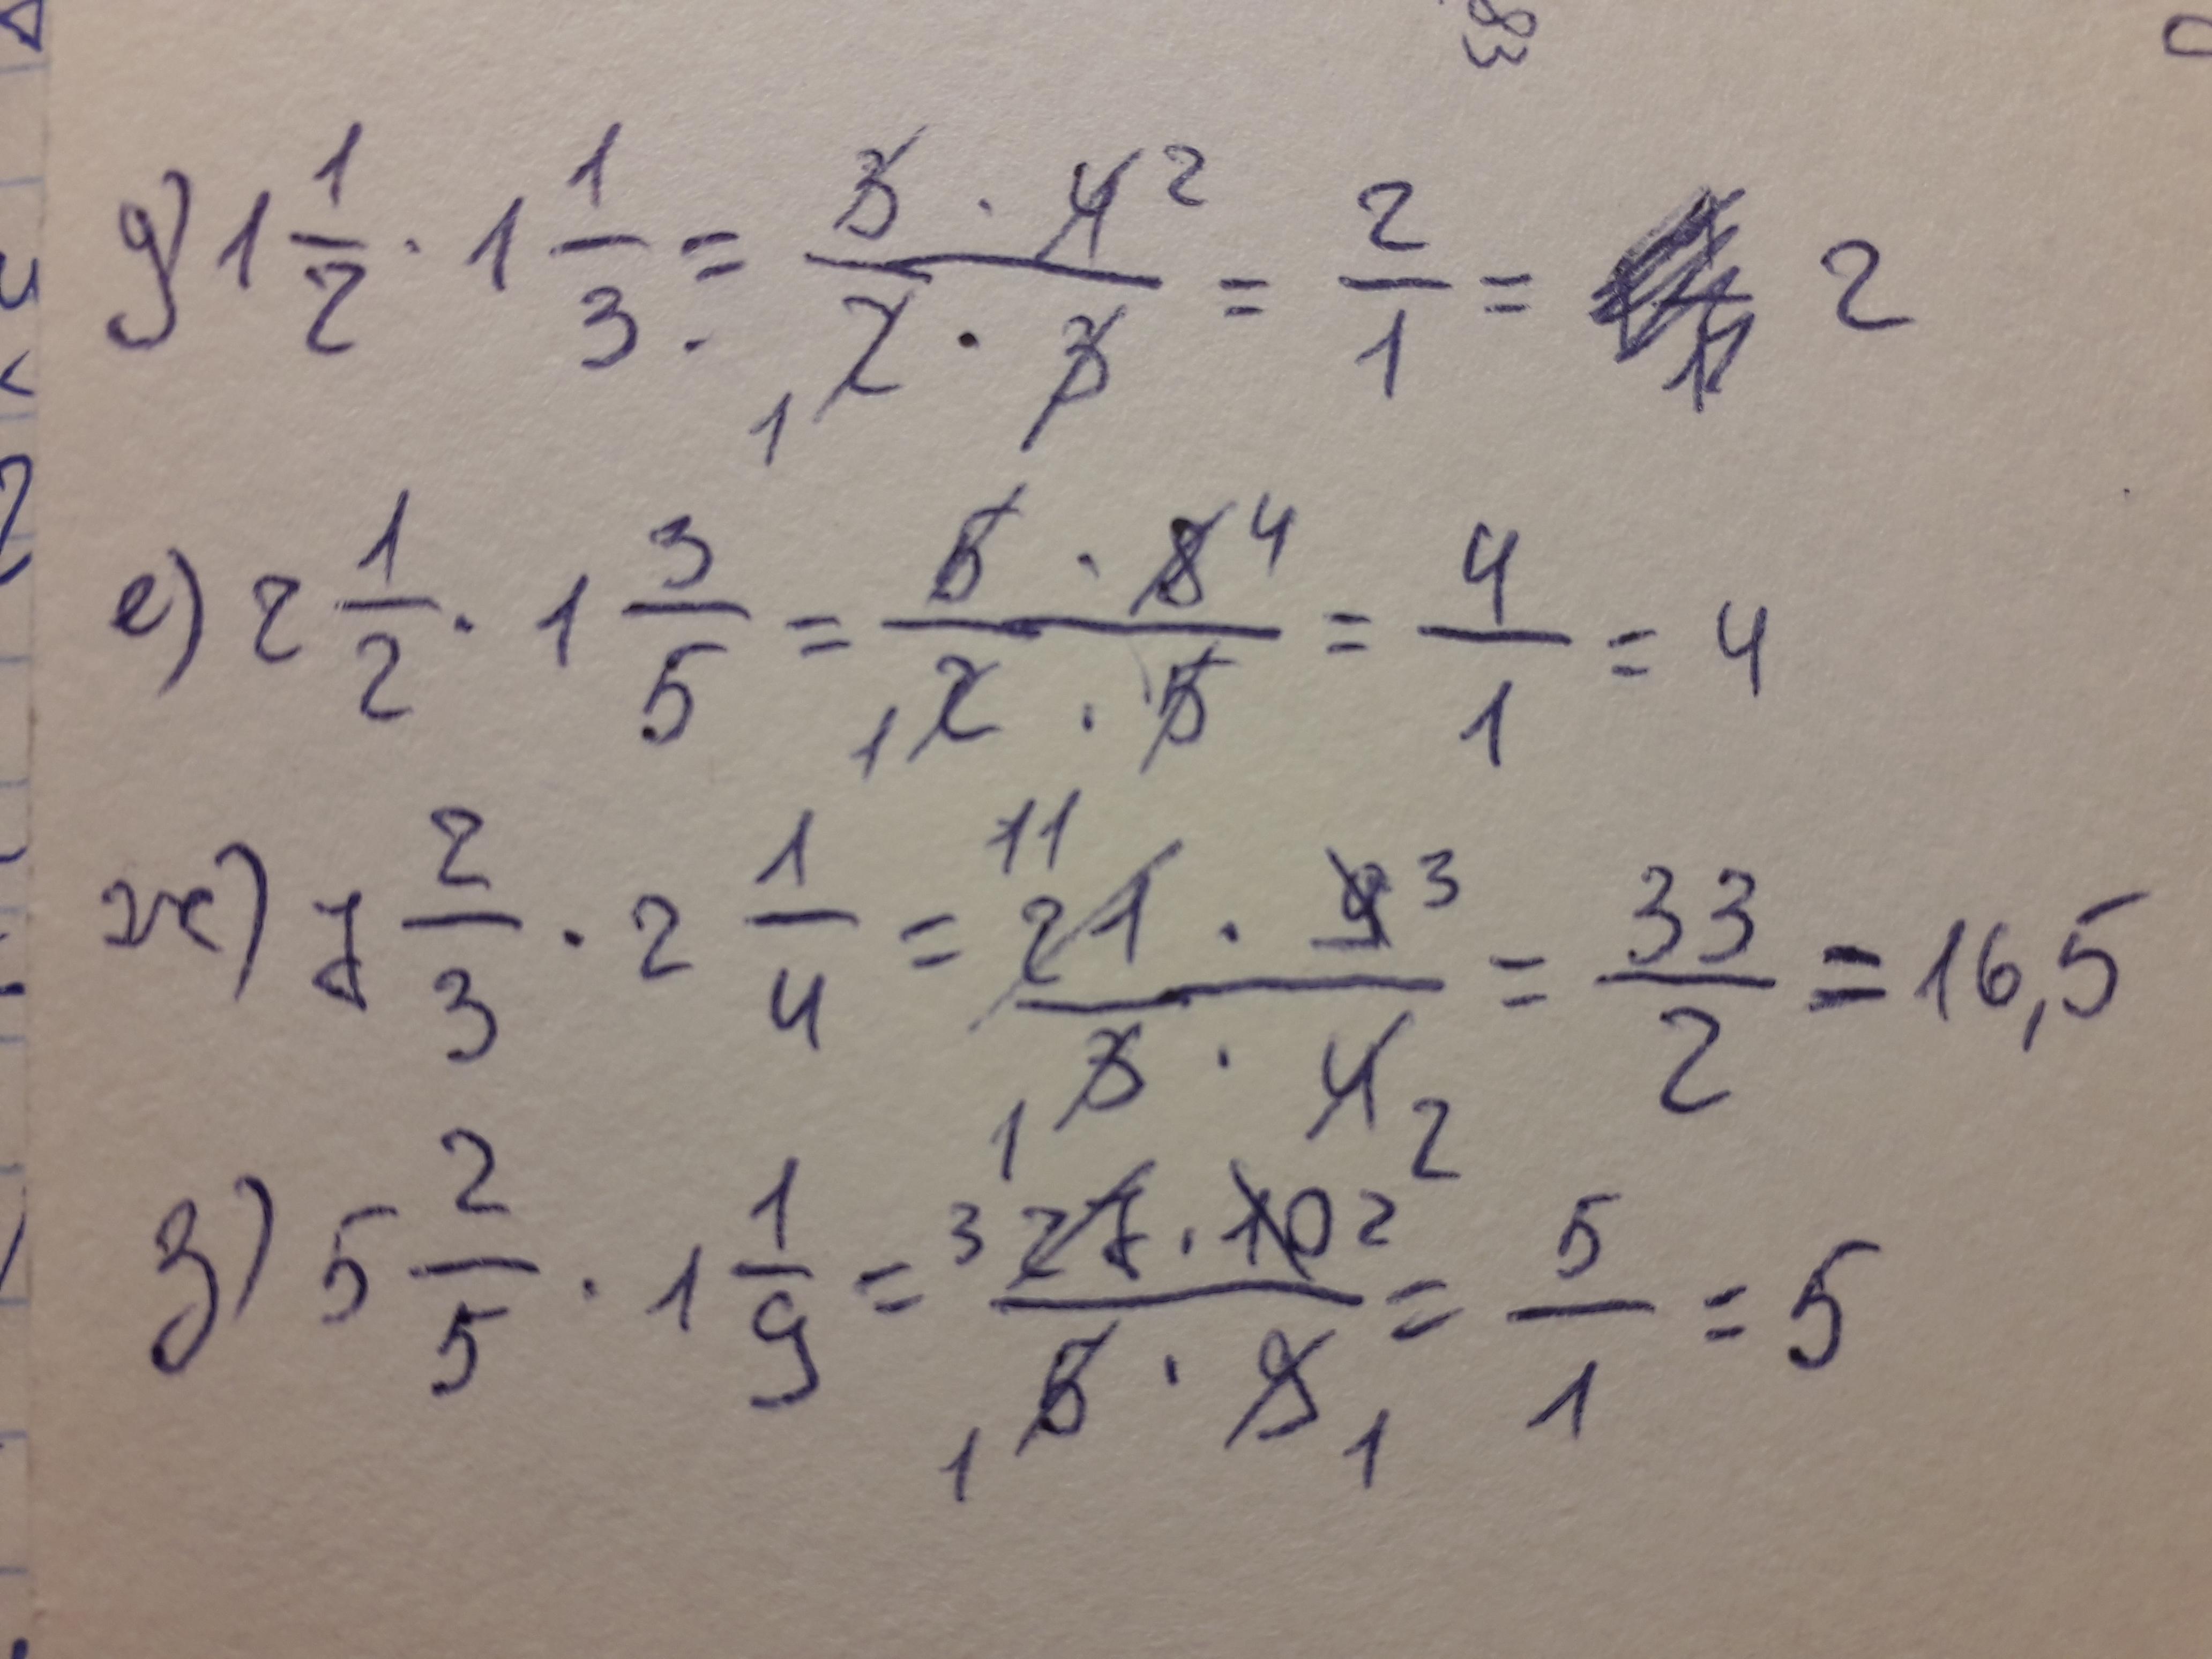 д) 1 1/2 · 1 1/3 = 3 · 4 2 / 1 2 · 3 = 2/1 = 2
е) 2 1/2 · 1 3/5 = 5 · 8 4 / 1 2 · 5 = 4/1 = 4
ж) 7 2/3 · 2 1/4 = 11 21 · 9 3 / 1 3 · 4 2 = 33/2 = 16,5
з) 5 2/5 · 1 1/9 = 3 27 · 10 2 / 1 5 · 9 1 = 5/1 = 5